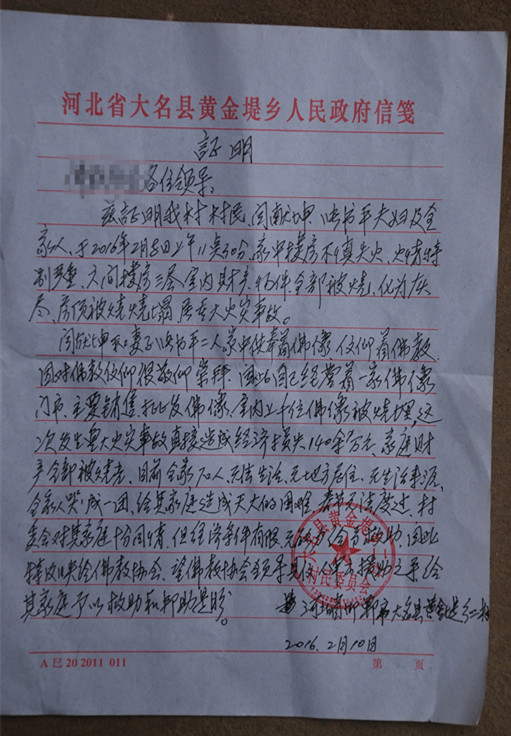 河北省大名县黄金堤乡人民政府信笺
証明
各位领导:
兹証明我村村民,闫献坤、书平夫妇及全
家人,于2016年2月5日上午11点30分,家中楼房不慎失火,火情特
别严重,六间楼房三层室内财产、物件全部被烧,化为灰
尽,房顶被烧烧塌,属重大火灾事故。
闫献坤和妻子书平二人家中供着佛像,信仰着佛教,
因对佛教信仰很敬仰崇拜,因此自己经营着一家佛像
门市,主要销售、批发佛像,室内上千位佛像被烧埋,这
次发生重大火灾事故直接造成经济损失140余万元,家庭财
产全部被烧着,目前全家人无法生活,无地方居住,无生活来源,
全家人哭成一团,给其家庭造成天大的困难,春节无法度过,村
委会对其家庭十分同情,但经济条件有限,无能力给予救助,因此
特反映给佛教协会,望佛教协会领导具伸出援助之手,给
其家庭予以救助和帮助是盼。
河北省邯郸市大名县黄金堤乡二村
2016.2月10日
大名县黄金堤乡
村民委员会
A 已 20 2011 011
第 页